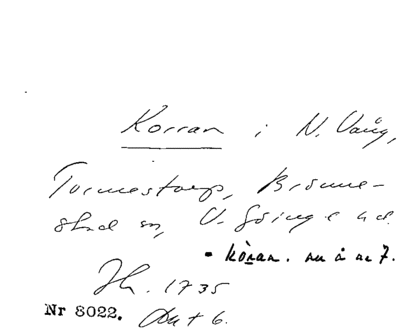 Korran i N. Vång,
Tormestorp, Brönne-
stad sn, V. Göinge hd.
- kòran. au å ac 7.
Jh. 1735
Nr 8022. Akt 6.